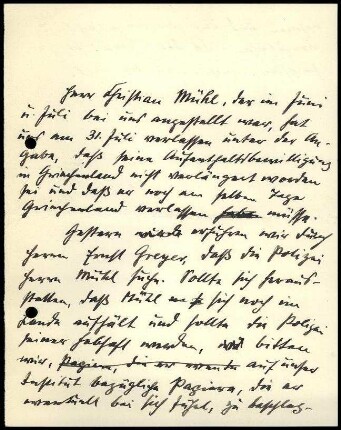 Herr Christian Mühl, der im Juni
u. Juli bei uns angestellt war, hat
uns am 31. Juli verlassen unter der An-
gabe, daß seine Aufenthaltsbewilligung
in Griechenland nicht verlängert worden
sei und daß er noch am selben Tage
Griechenland verlassen habe müsse.
Gestern wurde erfuhren wir durch
Herrn Ernst Greyer, daß die Polizei
Herrn Mühl suche. Sollte sich heraus-
stellen, daß Mühl sich noch im
Lande aufhält und sollte die Polizei
seiner habhaft werden, bitten
wir, Papiere, die er auf unser
Institut bezügliche Papiere, die er
eventuell bei sich führt, zu beschlag-